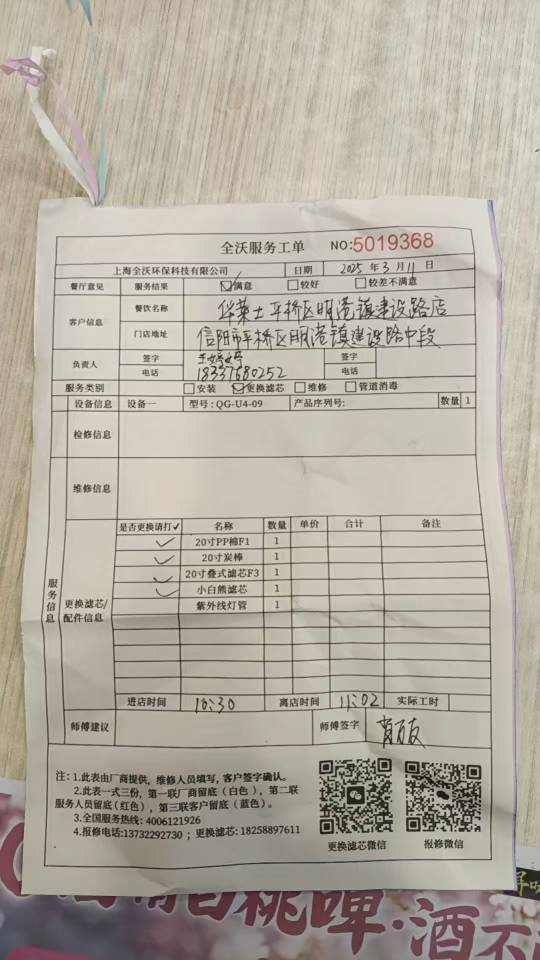 全沃服务工单 NO:5019368
上海全沃环保科技有限公司 日期 2025 年 3 月 11 日
餐厅意见 服务结果 ☑满意 □较好 □较差不满意
客户信息 餐饮名称 华莱士平桥区明港镇建设路店
门店地址 信阳市平桥区明港镇建设路中段
负责人 签字 签字
电话 18337680252 电话
服务类别 □安装 ☑更换滤芯 □维修 □管道消毒
设备信息 设备一 型号: QG-U4-09 产品序列号: 数量 1
检修信息
维修信息
服务信息
更换滤芯/配件信息
是否更换请打✓ 名称 数量 单价 合计 备注
✓ 20寸PP棉F1 1
✓ 20寸炭棒 1
✓ 20寸叠式滤芯F3 1
✓ 小白熊滤芯 1
紫外线灯管 1
进店时间 10:30 离店时间 11:02 实际工时
师傅建议 师傅签字
注: 1.此表由厂商提供, 维修人员填写, 客户签字确认。
2.此表一式三份, 第一联厂商留底 (白色), 第二联
服务人员留底(红色), 第三联客户留底 (蓝色)。
3.全国服务热线: 4006121926
4.报修电话:13732292730 ; 更换滤芯: 18258897611
更换滤芯微信 报修微信
桃啤·酒不